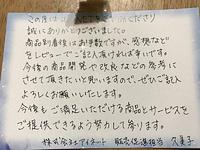 この度は
誠にありがとうございました。
商品到着後はお手数ですが、感想など
をレビューでご記入頂ければ幸いです。
今後の商品開発や改良などの参考に
させて頂きたいと思いますので、ぜひご記入
よろしくお願いいたします。
今後もご満足いただける商品とサービスを
ご提供できるよう努力して参ります。
株式会社アイネット 販売促進担当 久美子